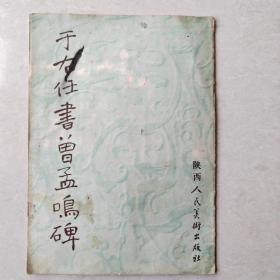 于右任書曾孟鳴碑
陝西人民美術出版社